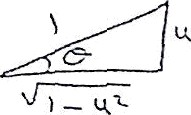 1
u
θ
√1-u²